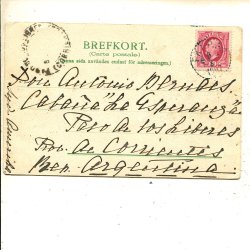 BREFKORT.
(Carte postale)
Denna sida användes endast för adresseringen.
Don Antonio Berndes.
Cabaña "La Esperanza"
Paso de los Libres
Prov. de Corrientes
Rep. Argentina